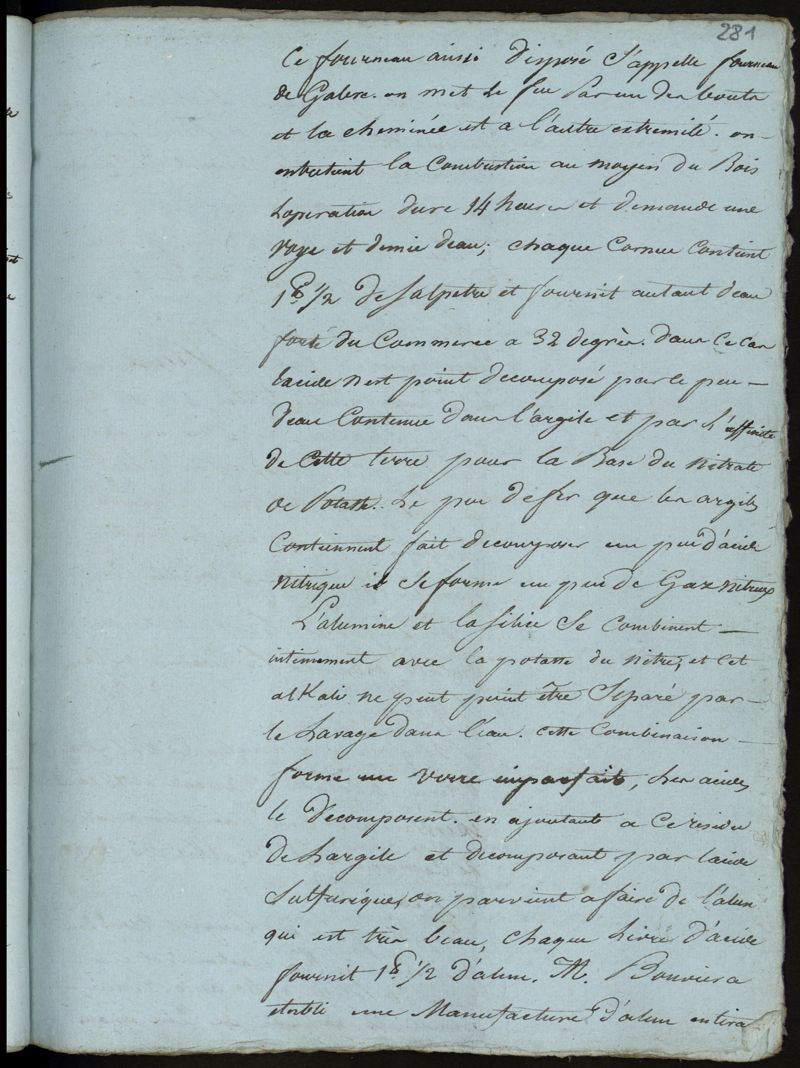 281
Ce fourneau ainsi disposé s'appelle fourneau
de Galere. on met le feu par un des bouts
et la cheminée est a l'autre extremité. on
entretient la Combustion au moyen du Bois
Loperation dure 14 heures et demande une
voye et demie deau; chaque Cornue Contient
1 ℔ 1/2 de Salpetre et fournit autant deau
forte du Commerce a 32 degrés. dans ce cas
lacide nest point decomposé par le peu
deau Contenue dans l'argile et par l'affinité
de cette terre pour la Base du nitrate
de Potasse. Le peu de fer que les argiles
Contiennent fait decomposer un peu d'acide
nitrique il se forme un peu de Gaz nitreux
L'alumine et la silice se combinent
intimement avec la potasse du nitre, et cet
alKali ne peut point être separé par
le Lavage dans l'eau. cette Combinaison
forme un verre imparfait, les acides
le decomposent. en ajoutant a ce residu
de Largile et decomposant par lacide
Sulfurique, on parvient a faire de l'alun
qui est très beau, chaque Livre d'acide
fournit 1 ℔ 1/2 d'alun. M. Bouvier a
etabli une Manufacture d'alun